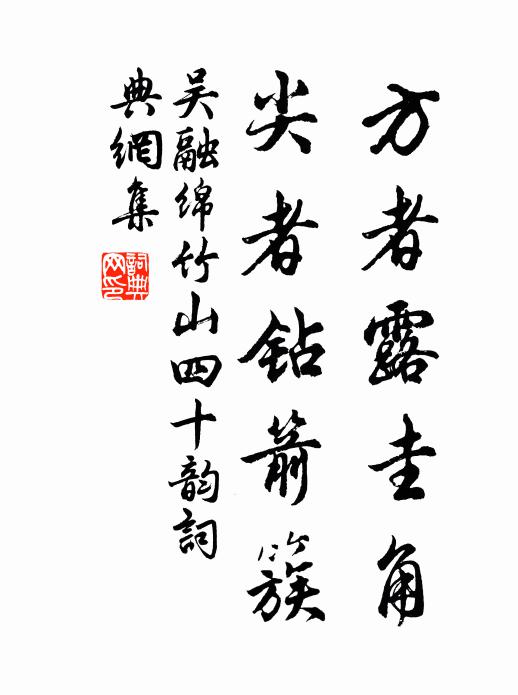 方者露圭角
尖者钻箭簇
吴融绵竹山四十韵詞
典網集
詞典网印